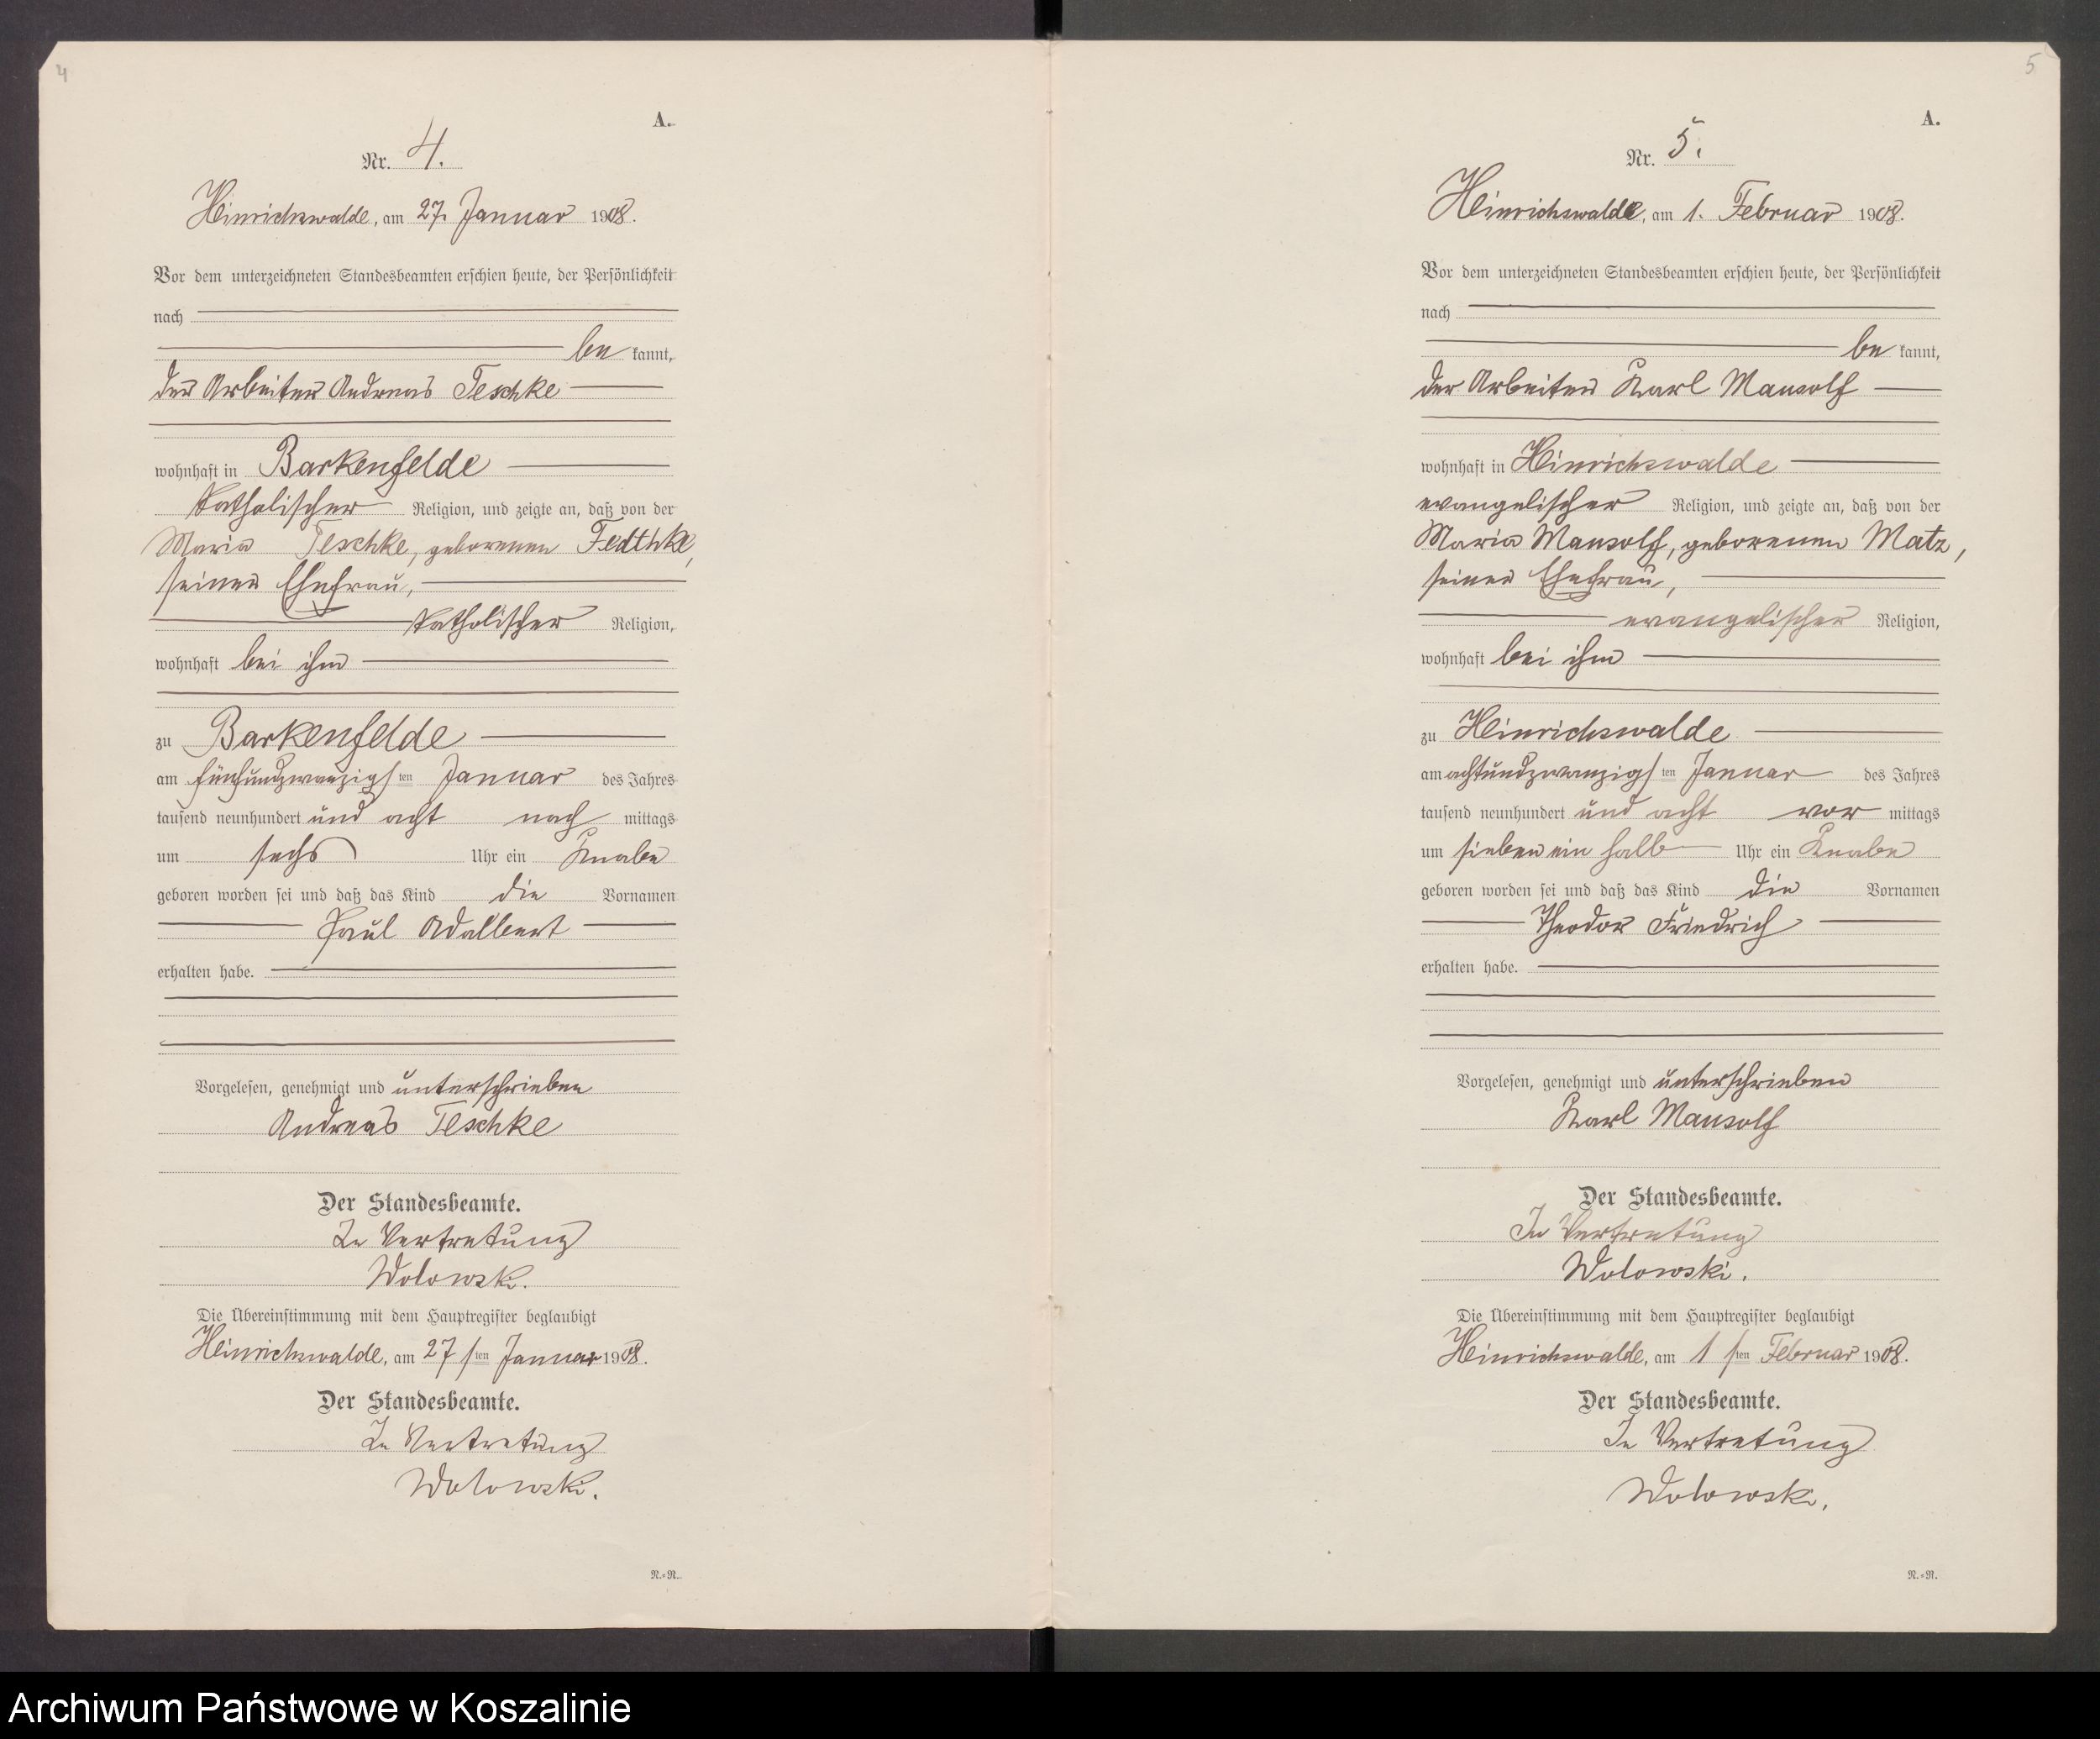 4
A.
Nr. 4.
Heinrichswalde, am 27. Januar 1908.
Vor dem unterzeichneten Standesbeamten erschien heute, der Persönlichkeit
nach
be kannt,
der Arbeiter Andreas Teschke
wohnhaft in Barkenfelde
katholischer Religion, und zeigte an, daß von der
Maria Teschke, geborenen Fedthke,
seiner Ehefrau,
katholischer Religion,
wohnhaft bei ihm
zu Barkenfelde
am fünfundzwanzigsten Januar des Jahres
tausend neunhundert und acht nach mittags
um sechs Uhr ein Knabe
geboren worden sei und daß das Kind die Vornamen
Paul Adalbert
erhalten habe.
Vorgelesen, genehmigt und unterschrieben
Andreas Teschke
Der Standesbeamte.
In Vertretung
Wolowski.
Die Übereinstimmung mit dem Hauptregister beglaubigt
Heinrichswalde, am 27 sten Januar 1908.
Der Standesbeamte.
In Vertretung
Wolowski.
N.=R.
5
A.
Nr. 5.
Heinrichswalde, am 1. Februar 1908.
Vor dem unterzeichneten Standesbeamten erschien heute, der Persönlichkeit
nach
be kannt,
der Arbeiter Karl Mansolf
wohnhaft in Heinrichswalde
evangelischer Religion, und zeigte an, daß von der
Maria Mansolf, geborenen Matz,
seiner Ehefrau,
evangelischer Religion,
wohnhaft bei ihm
zu Heinrichswalde
am achtundzwanzigsten Januar des Jahres
tausend neunhundert und acht vor mittags
um sieben ein halb Uhr ein Knabe
geboren worden sei und daß das Kind die Vornamen
Theodor Friedrich
erhalten habe.
Vorgelesen, genehmigt und unterschrieben
Karl Mansolf
Der Standesbeamte.
In Vertretung
Wolowski.
Die Übereinstimmung mit dem Hauptregister beglaubigt
Heinrichswalde, am 1 sten Februar 1908.
Der Standesbeamte.
In Vertretung
Wolowski.
N.=R.
Archiwum Państwowe w Koszalinie